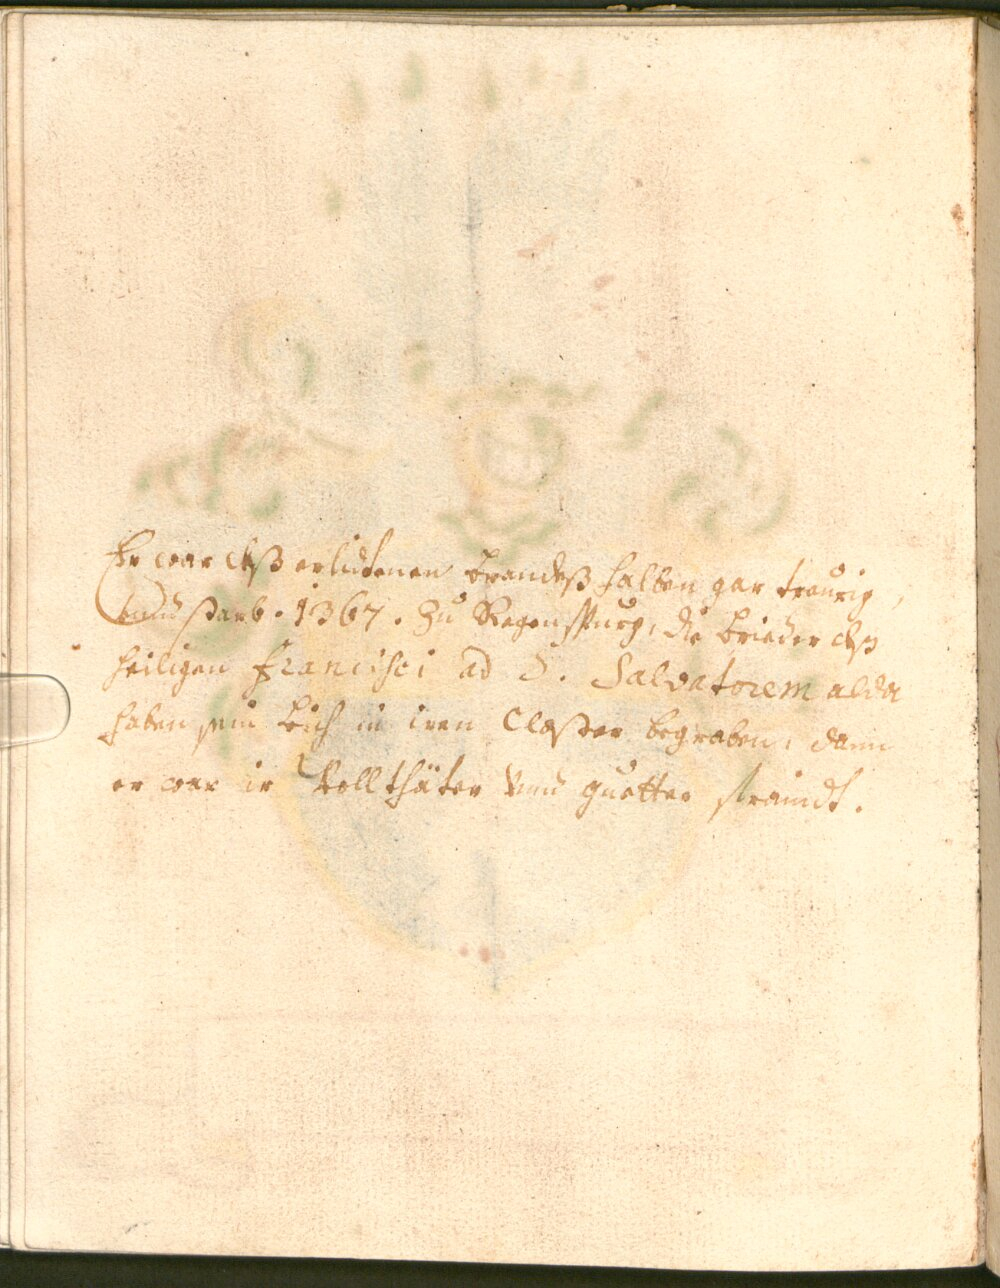 Er war deß erlidtenen brandeß halben gar traurig,
vnnd starb. 1367. Zu Regenspurg, die brieder deß
heiligen Francisci ad S. Salvatorem alda
haben sein leich in iren Closter begraben, dann
er war ir Vollthäter vnnd guetter fraindt.